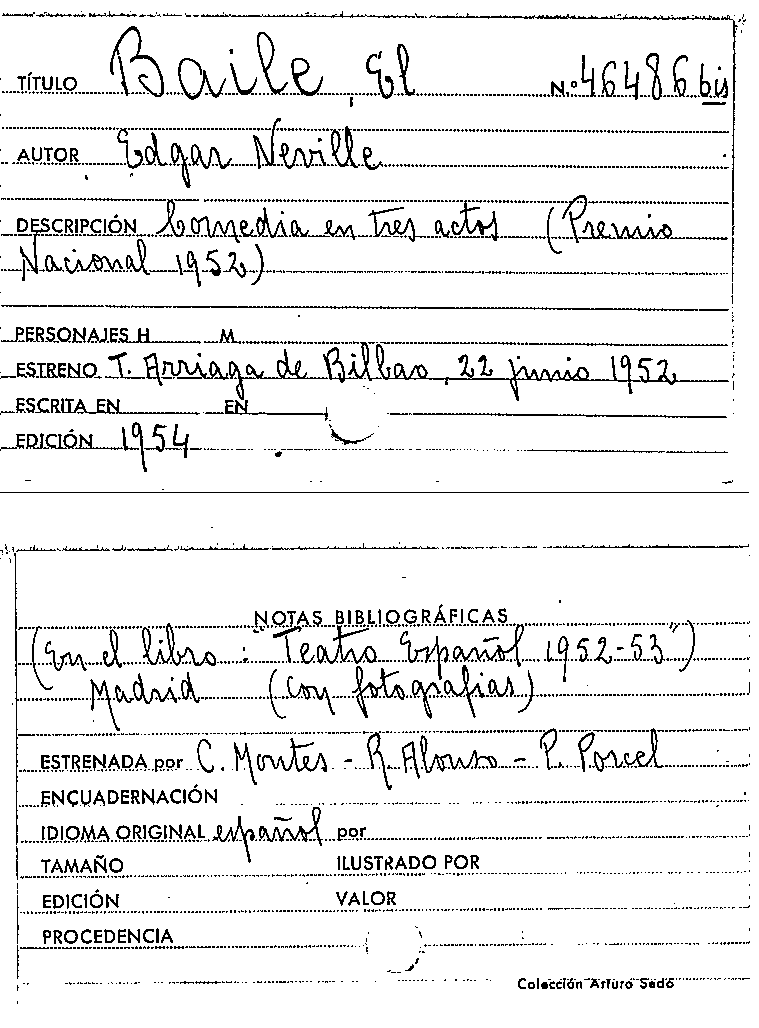 TÍTULO Baile, El N.º 46486 bis
AUTOR Edgar Neville
DESCRIPCIÓN Comedia en tres actos (Premio
Nacional 1952)
PERSONAJES H M
ESTRENO T. Arriaga de Bilbao, 22 junio 1952
ESCRITA EN EN
EDICIÓN 1954
NOTAS BIBLIOGRÁFICAS
(En el libro: "Teatro Español 1952-53")
Madrid (con fotografias)
ESTRENADA por C. Montes - R. Alonso - P. Porcel
ENCUADERNACIÓN
IDIOMA ORIGINAL español por
TAMAÑO ILUSTRADO POR
EDICIÓN VALOR
PROCEDENCIA
Colección Arturo Sedó